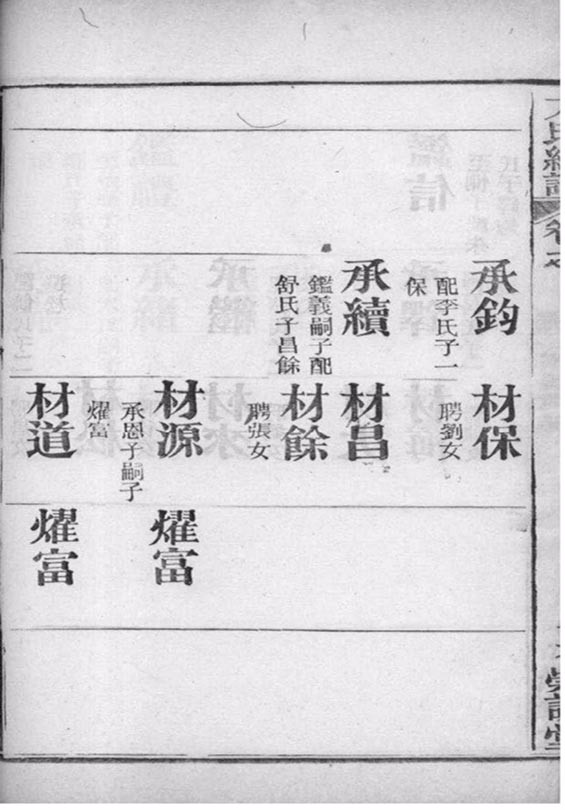 承鈞
配李氏子一
保
承續
鑑義嗣子配
舒氏子昌餘
材保
聘劉女
材昌
材餘
聘張女
材源
承恩子嗣子
燿富
材道
燿富
燿富